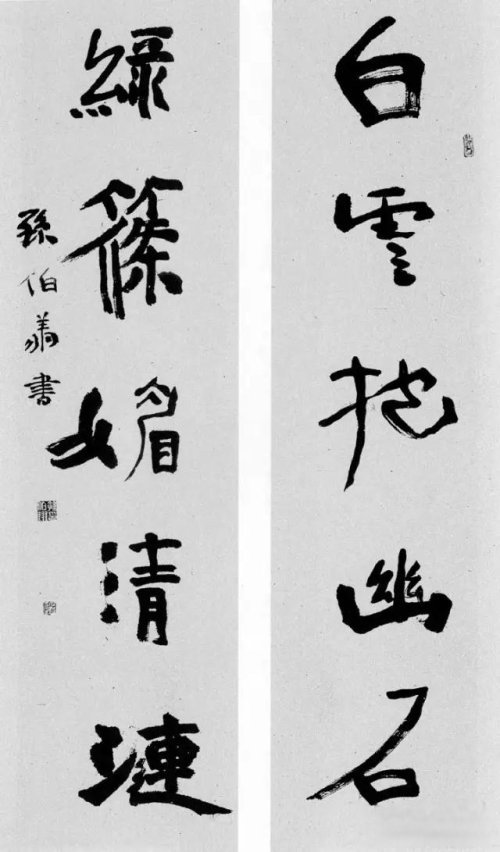 白雲抱幽石
綠篠媚清漣
孫伯翔書